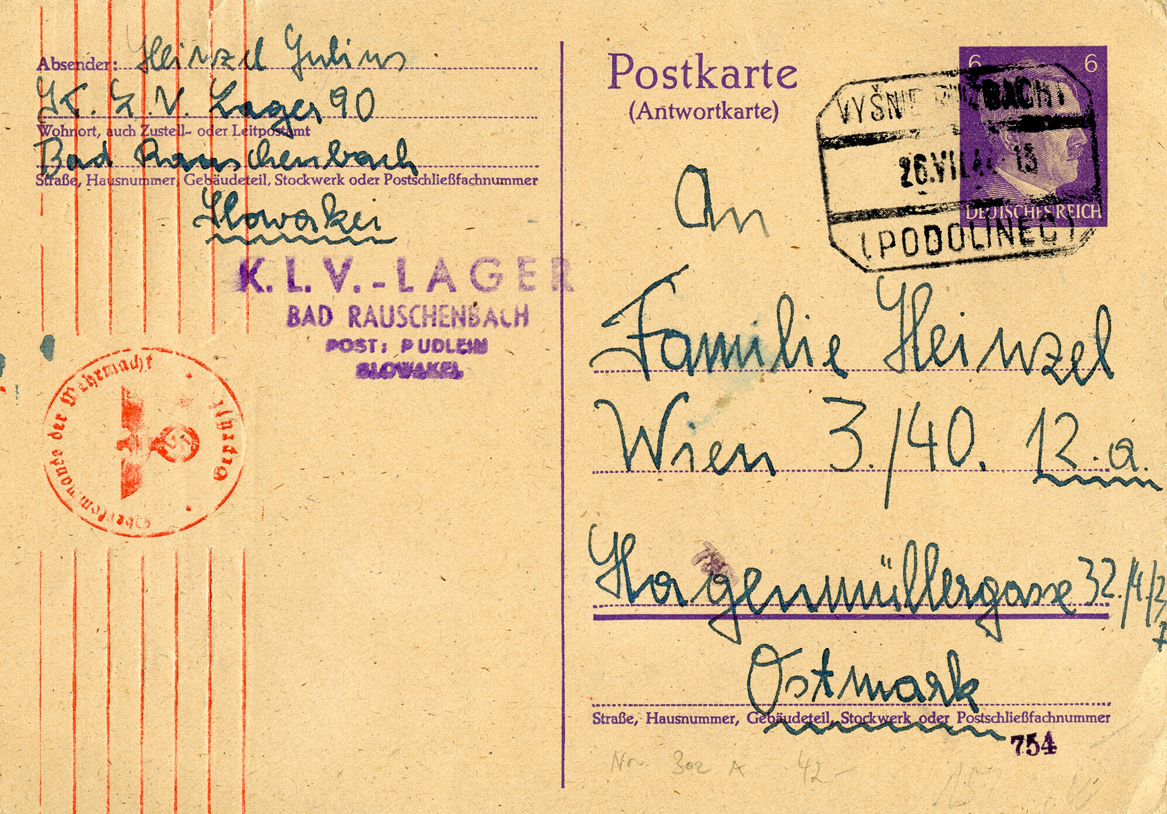 Absender: Heinzel Julius
K. L. V. Lager 90
Wohnort, auch Zustell- oder Leitpostamt
Bad Rauschenbach
Straße, Hausnummer, Gebäudeteil, Stockwerk oder Postschließfachnummer
Slowakei
K. L. V. - LAGER
BAD RAUSCHENBACH
POST: PUDLEIN
SLOWAKEI
Oberkommando der Wehrmacht
Geprüft
Postkarte
(Antwortkarte)
6 6
DEUTSCHES REICH
VYŠNIE
26.VII.
(PODOLINEC)
An
Familie Heinzel
Wien 3./40. 12.a.
Hagenmüllergasse 32./4./
Ostmark
Straße, Hausnummer, Gebäudeteil, Stockwerk oder Postschließfachnummer
754
302 42-